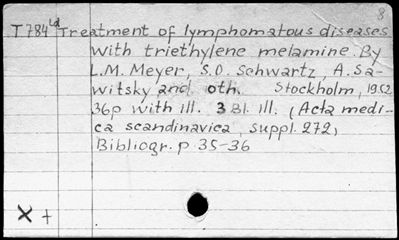 8
T784 Ld Treatment of lymphomatous diseases
with triethylene melamine. By
L.M. Meyer, S.O. Schwartz, A. Sa-
witsky and oth. Stockholm, 1952
36p with ill. 3 Bl. ill. (Acta medi-
ca scandinavica, suppl. 272)
Bibliogr. p 35-36
X +